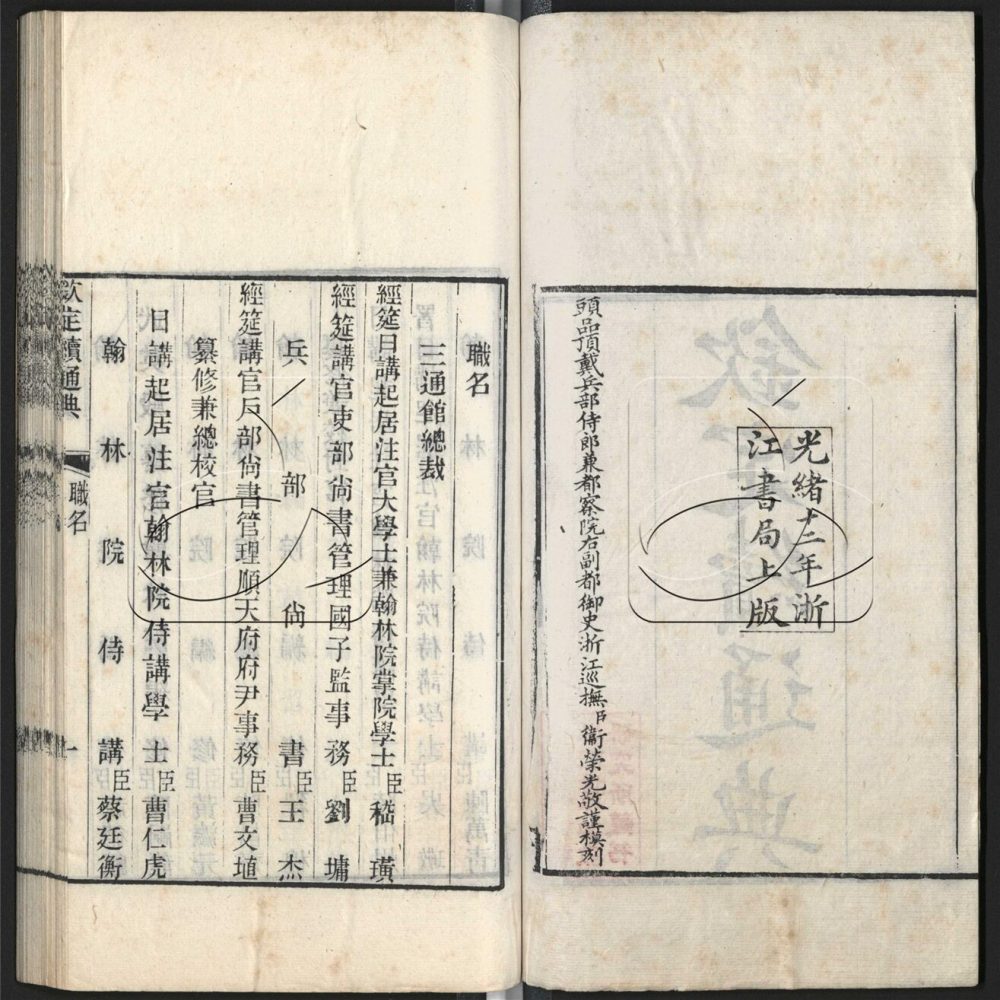 光緒十二年浙
江書局上版
頭品頂戴兵部侍郎兼都察院右副都御史浙江巡撫臣衞榮光敬謹模刻
職名
三通館總裁
經筵日講起居注官大學士兼翰林院掌院學士臣嵇璜
經筵講官吏部尚書管理國子監事務臣劉墉
兵部尚書臣王杰
經筵講官戶部尚書管理順天府府尹事務臣曹文埴
纂修兼總校官
日講起居注官翰林院侍講學士臣曹仁虎
翰林院侍講臣蔡廷衡
欽定續通典
職名
一